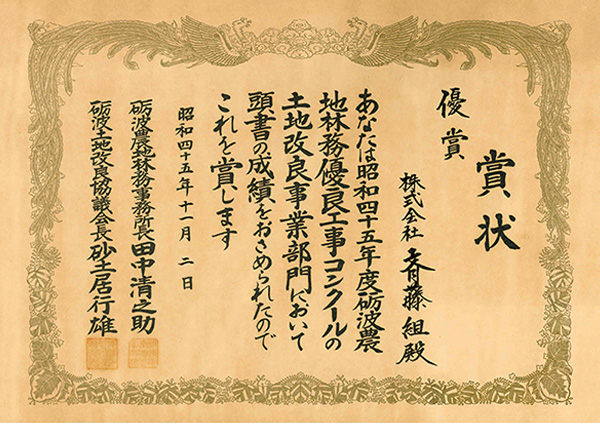 賞状
優賞
株式会社 斉藤組殿
あなたは昭和四十五年度砺波農
地林務優良工事コンクールの
土地改良事業部門において
頭書の成績をおさめられたので
これを賞します
昭和四十五年十一月二日
砺波農地林務事務所長 田中清之助
砺波土地改良協議会長 砂土居行雄